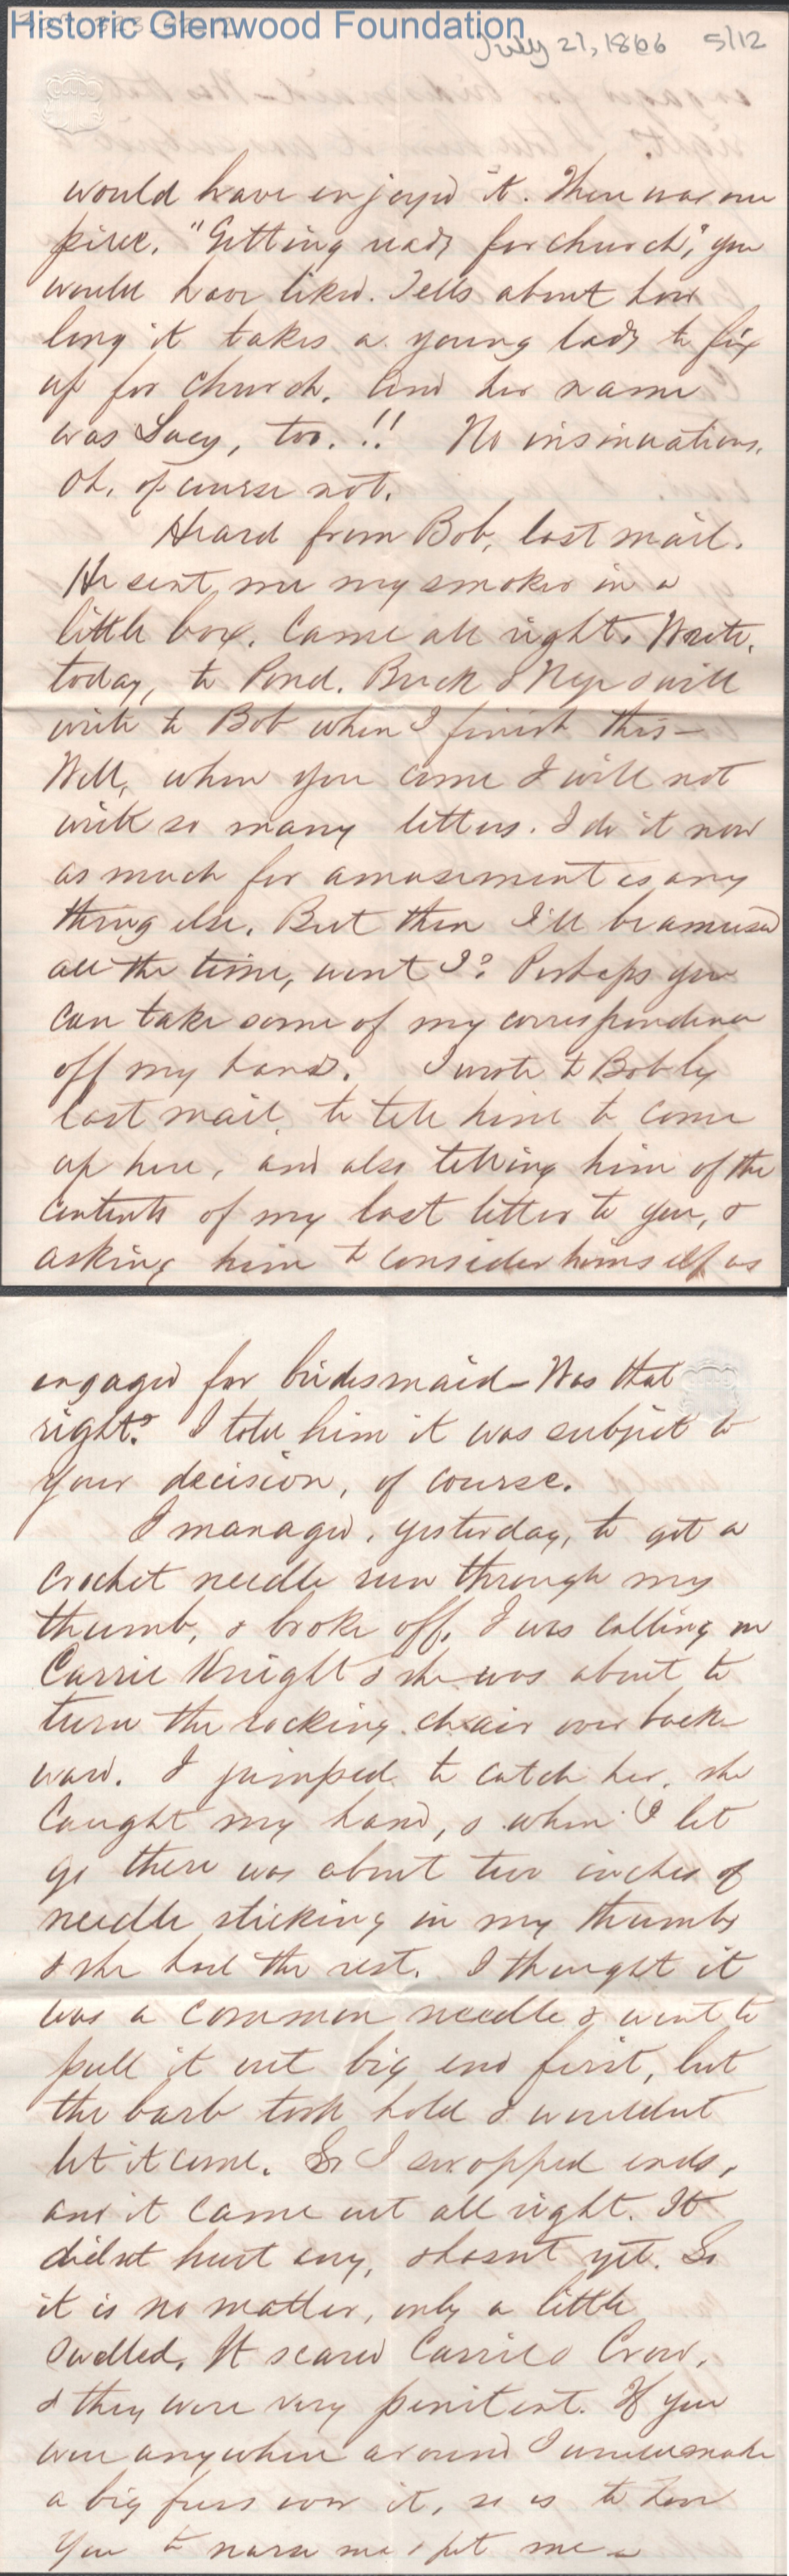 Historic Glenwood Foundation
July 21, 1866 5/12
would have enjoyed it. There was one
piece. "Getting ready for church," you
would have liked. Tells about how
long it takes a young lady to fix
up for church. And her name
was Lucy, too.!! No insinuations.
Oh, of course not.
Heard from Bob, last mail.
He sent me my smoker in a
little box. Came all right. Wrote,
today, to Pond. Buck & Nep & will
write to Bob when I finish this—
Well, when you come I will not
write so many letters. I do it now
as much for amusement as any
thing else. But then I'll be amused
all the time, wont I? Perhaps you
can take some of my correspondence
off my hands. I wrote to Bob by
last mail to tell him to come
up here, and also telling him of the
contents of my last letter to you, &
asking him to consider himself as
engaged for bridesmaid— Was that
right? I told him it was subject to
your decision, of course.
I managed, yesterday, to get a
crochet needle run through my
thumb, & broke off. I was calling on
Carrie Wright & she was about to
turn the rocking chair over back-
ward. I jumped to catch her. she
caught my hand, & when I let
go there was about two inches of
needle sticking in my thumb,
& she had the rest. I thought it
was a common needle & went to
pull it out big end first, but
the barb took hold & wouldnt
let it come. So I swopped ends,
and it came out all right. It
didnt hurt any, & hasnt yet. So
it is no matter, only a little
swelled. It scared Carrie & Crow,
& they were very penitent. If you
were anywhere around I would make
a big fuss over it, so as to have
you to nurse me & pet me—